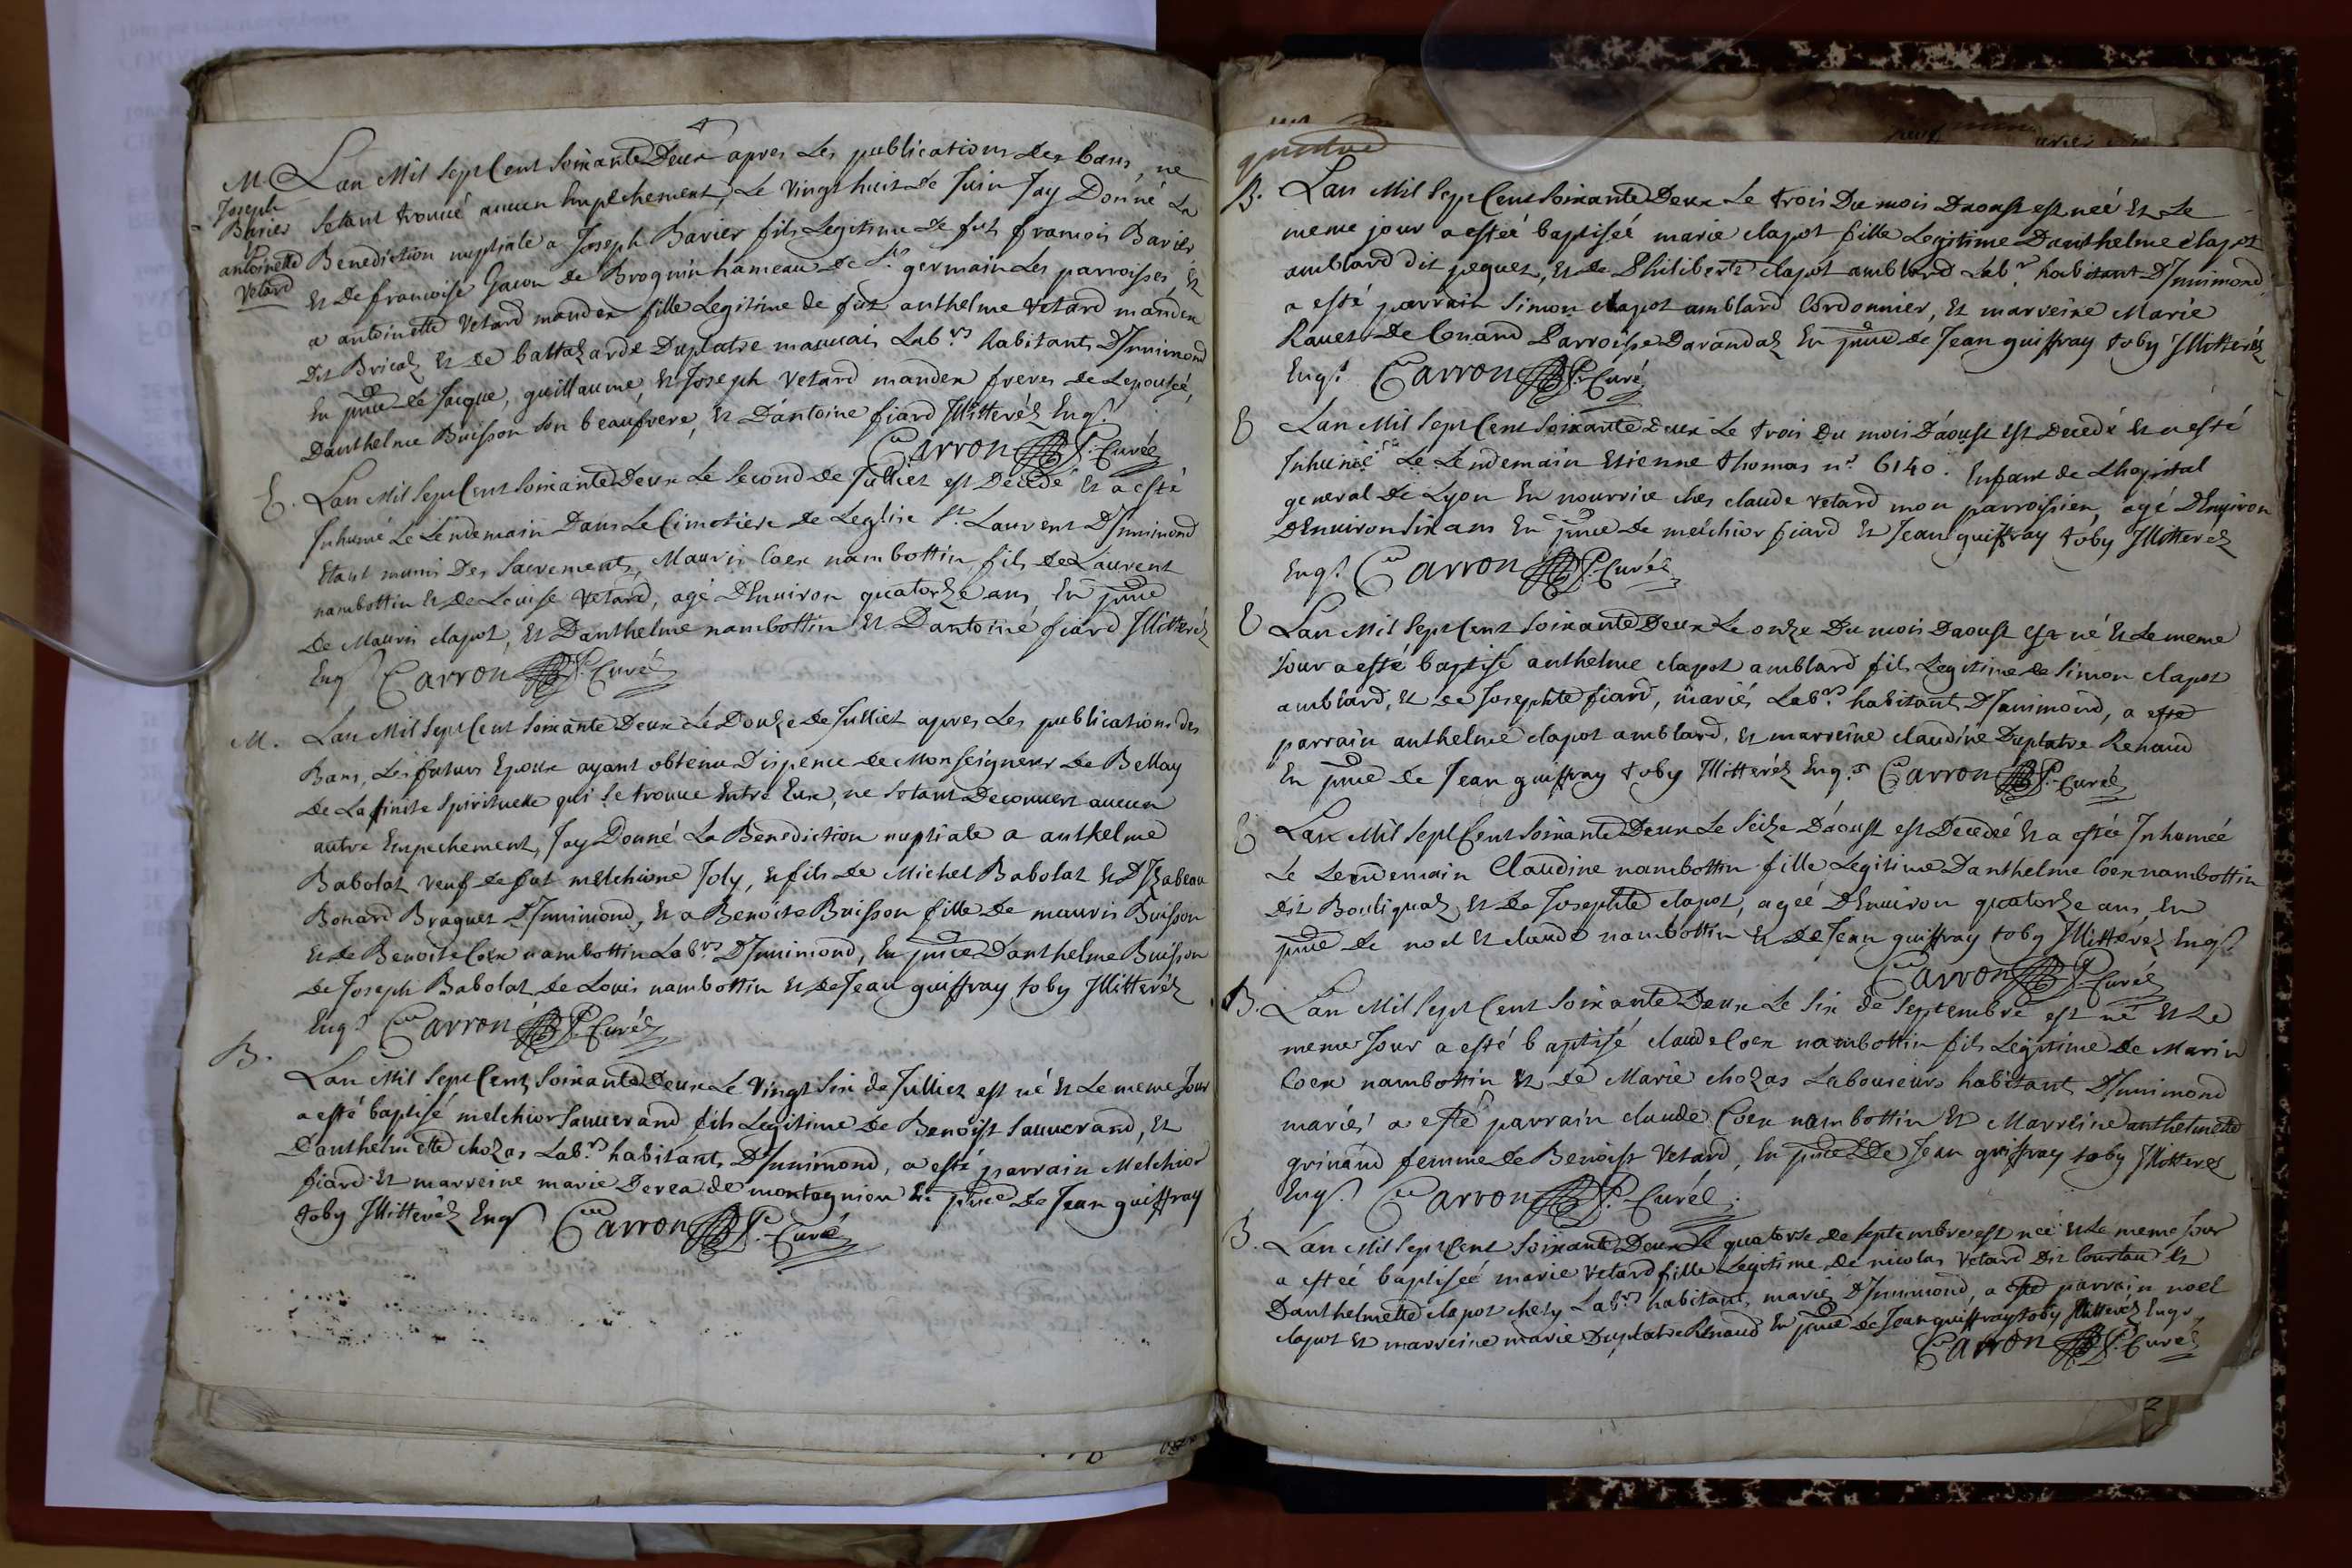 M. Lan Mil Sept Cent Soixante Deux apres Les publications des bans, ne
Joseph Barier et antoinette Vetard
Setant trouvé aucun Empechement, Le Vingt huit de Juin Jay Donné La
Benediction nuptiale a Joseph Barier fils Legitime de fut francois Barier
Et de francoise Gacon de Brognin hameau de St germain Les parroisses, Et
a antoinette Vetard mandex fille Legitime de fut anthelme Vetard mandex
Dit Bricat, Et de baltazarde Duplatre mauvais Labrs habitants D'Innimond
En pnce de Jacque, guillaume, Et Joseph Vetard mandex freres de Lepousée,
Danthelme Buisson son beaufrere, Et D'antoine fiard Illitteréz Enqs
Carron P. Curé
E. Lan Mil Sept Cent Soixante Deux Le Second de Julliet est Decedé Et a esté
Inhumé Le Lendemain Dans Le Cimetiere de Leglise St. Laurent D'Innimond
Etant munis Des Sacrements, Mauris Coex nambottin fils de Laurent
nambottin Et de Louise Vetard, agé D'Environ quatorze ans, En pnce
De Mauris clapot, Et Danthelme nambottin Et D'antoine fiard Illitteréz
Enqs Carron P. Curé
M. Lan Mil Sept Cent Soixante Deux Le Douze de Julliet apres Les publications des
Bans, Les futurs Epoux ayant obtenu Dispence de Monseigneur de Bellay
de Lafinite Spirituelle qui Se trouve Entre Eux, ne Setant Decouvert aucun
autre Empechement, Jay Donné La Benediction nuptiale a anthelme
Babolat veuf de fut melchione Joly, Et fils de Michel Babolat Et D'Izabeau
Bonard Braquet D'Innimond, Et a Benoite Buisson fille de mauris Buisson
Et de Benoite Coex nambottin Labrs D'Innimond, En pnce Danthelme Buisson
de Joseph Babolat de Louis nambottin Et de Jean guiffray toby Illitteréz
Enqs Carron P. Curé
B. Lan Mil Sept Cent Soixante Deux Le Vingt Six de Julliet est né Et Le meme Jour
a esté baptisé melchior Sauverand fils Legitime de Benoist Sauverand, Et
Danthelmette chozas Labrs habitants D'Innimond, a esté parrain Melchior
fiard Et marreine marie Derea de montagnieu En pnce de Jean guiffray
toby Illitteréz Enqs Carron P. Curé
B. Lan Mil Sept Cent Soixante Deux Le trois Du mois Daoust est née Et Le
meme jour a estée baptisée marie clapot fille Legitime Danthelme clapot
amblard dit peguet, Et de Philiberte clapot amblard Labrs habitant D'Innimond
a esté parrain Simon clapot amblard Cordonnier, Et marreine Marie
Ravet de Conand Parroisse Darandaz En pnce de Jean guiffray toby Illitteréz
Enqs Carron P. Curé
E Lan Mil Sept Cent Soixante deux Le trois Du mois D'aoust Est Decedé Et a esté
Inhumé Le Lendemain Etienne thomas no. 6140. Enfant de Lhopital
general de Lyon En nourrice ches claude Vetard mon parroissien, agé D'Environ
D'Environ Six ans En pnce De melchior fiard Et Jean guiffray toby Illitteréz
Enqs Carron P. Curé
E Lan Mil Sept Cent Soixante Deux Le onze Du mois Daoust est né Et Le meme
Jour a esté baptisé anthelme clapot amblard fils Legitime de Simon clapot
amblard, Et de Josephte fiard, mariés Labrs habitants D'Innimond, a esté
parrain anthelme clapot amblard, Et marreine claudine Duplatre Renaud
En pnce de Jean guiffray toby Illitteréz Enqs Carron P. Curé
E Lan Mil Sept Cent Soixante Deux Le Seize D'aoust est Decedeé Et a estée Inhumée
Le Lendemain Claudine nambottin fille Legitime Danthelme Coex nambottin
dit Bouliquat, Et de Josephte clapot, agée D'Environ quatorze ans En
pnce de noel Et claude nambottin Et de Jean guiffray toby Illitteréz Enqs
Carron P. Curé
B. Lan Mil Sept Cent Soixante Deux Le Six de Septembre est né Et Le
meme Jour a esté baptisé claude Coex nambottin fils Legitime de Marin
Coex nambottin Et de Marie chozas Laboureurs habitants D'Innimond
mariés a esté parrain claude Coex nambottin Et Marreine anthelmette
grinand femme de Benoist Vetard, En pnce de Jean guiffray toby Illitteréz
Enqs. Carron P. Curé
B. Lan Mil Sept Cent Soixante Deux Le quatorse de Septembre est neé Et Le meme Jour
a esteé baptiseé marie Vetard fille Legitime De nicolas Vetard Dit Courtau Et
Danthelmette clapot chely Labrs habitants mariés D'Innimond, a esté parrain noel
clapot Et marreine marie Duplatre Renaud En pnce de Jean guiffray toby Illitteréz Enqs,
Carron P. Curé